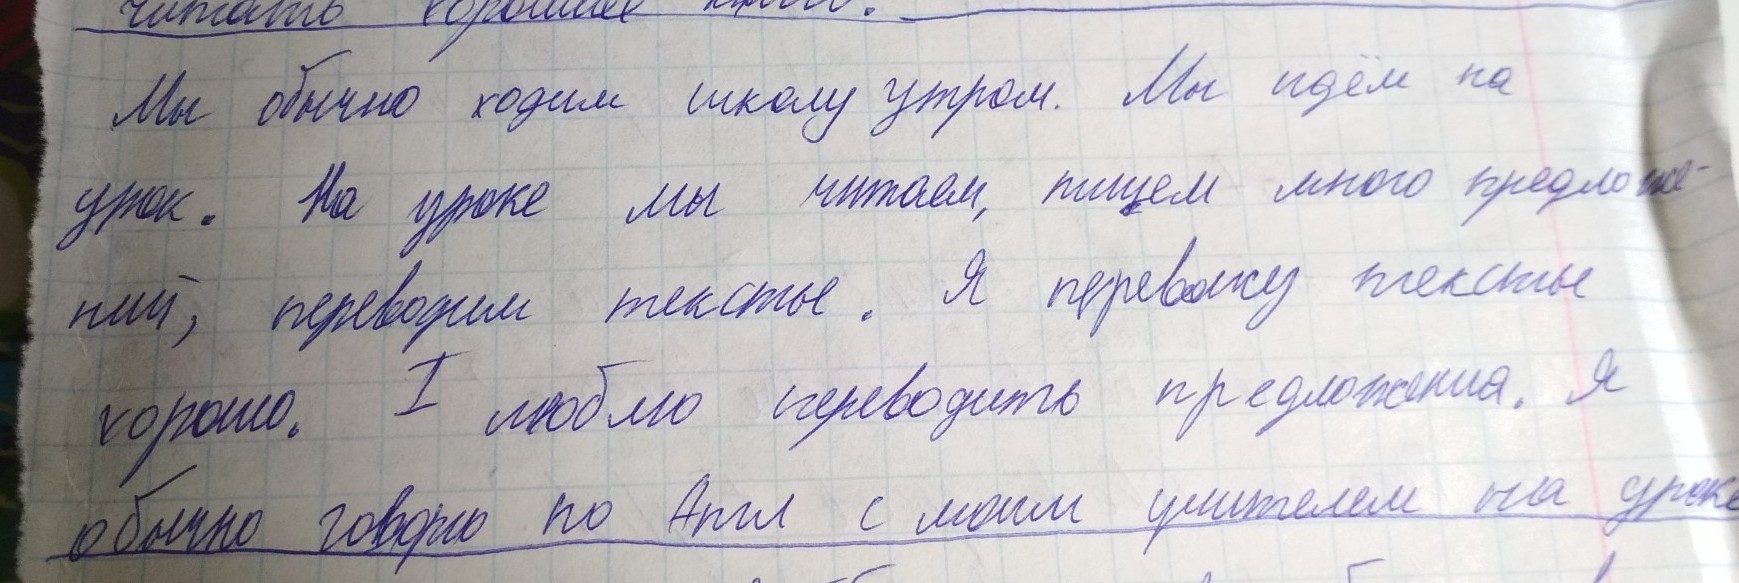 читать хорошие книги.
Мы обычно ходим школу утром. Мы идём на
урок. На уроке мы читаем, пищем много предложе-
ний, переводим тексты. Я перевожу тексты
хорошо. I люблю переводить предложения. Я
обычно говорю по Англ с моим учителем на уроке